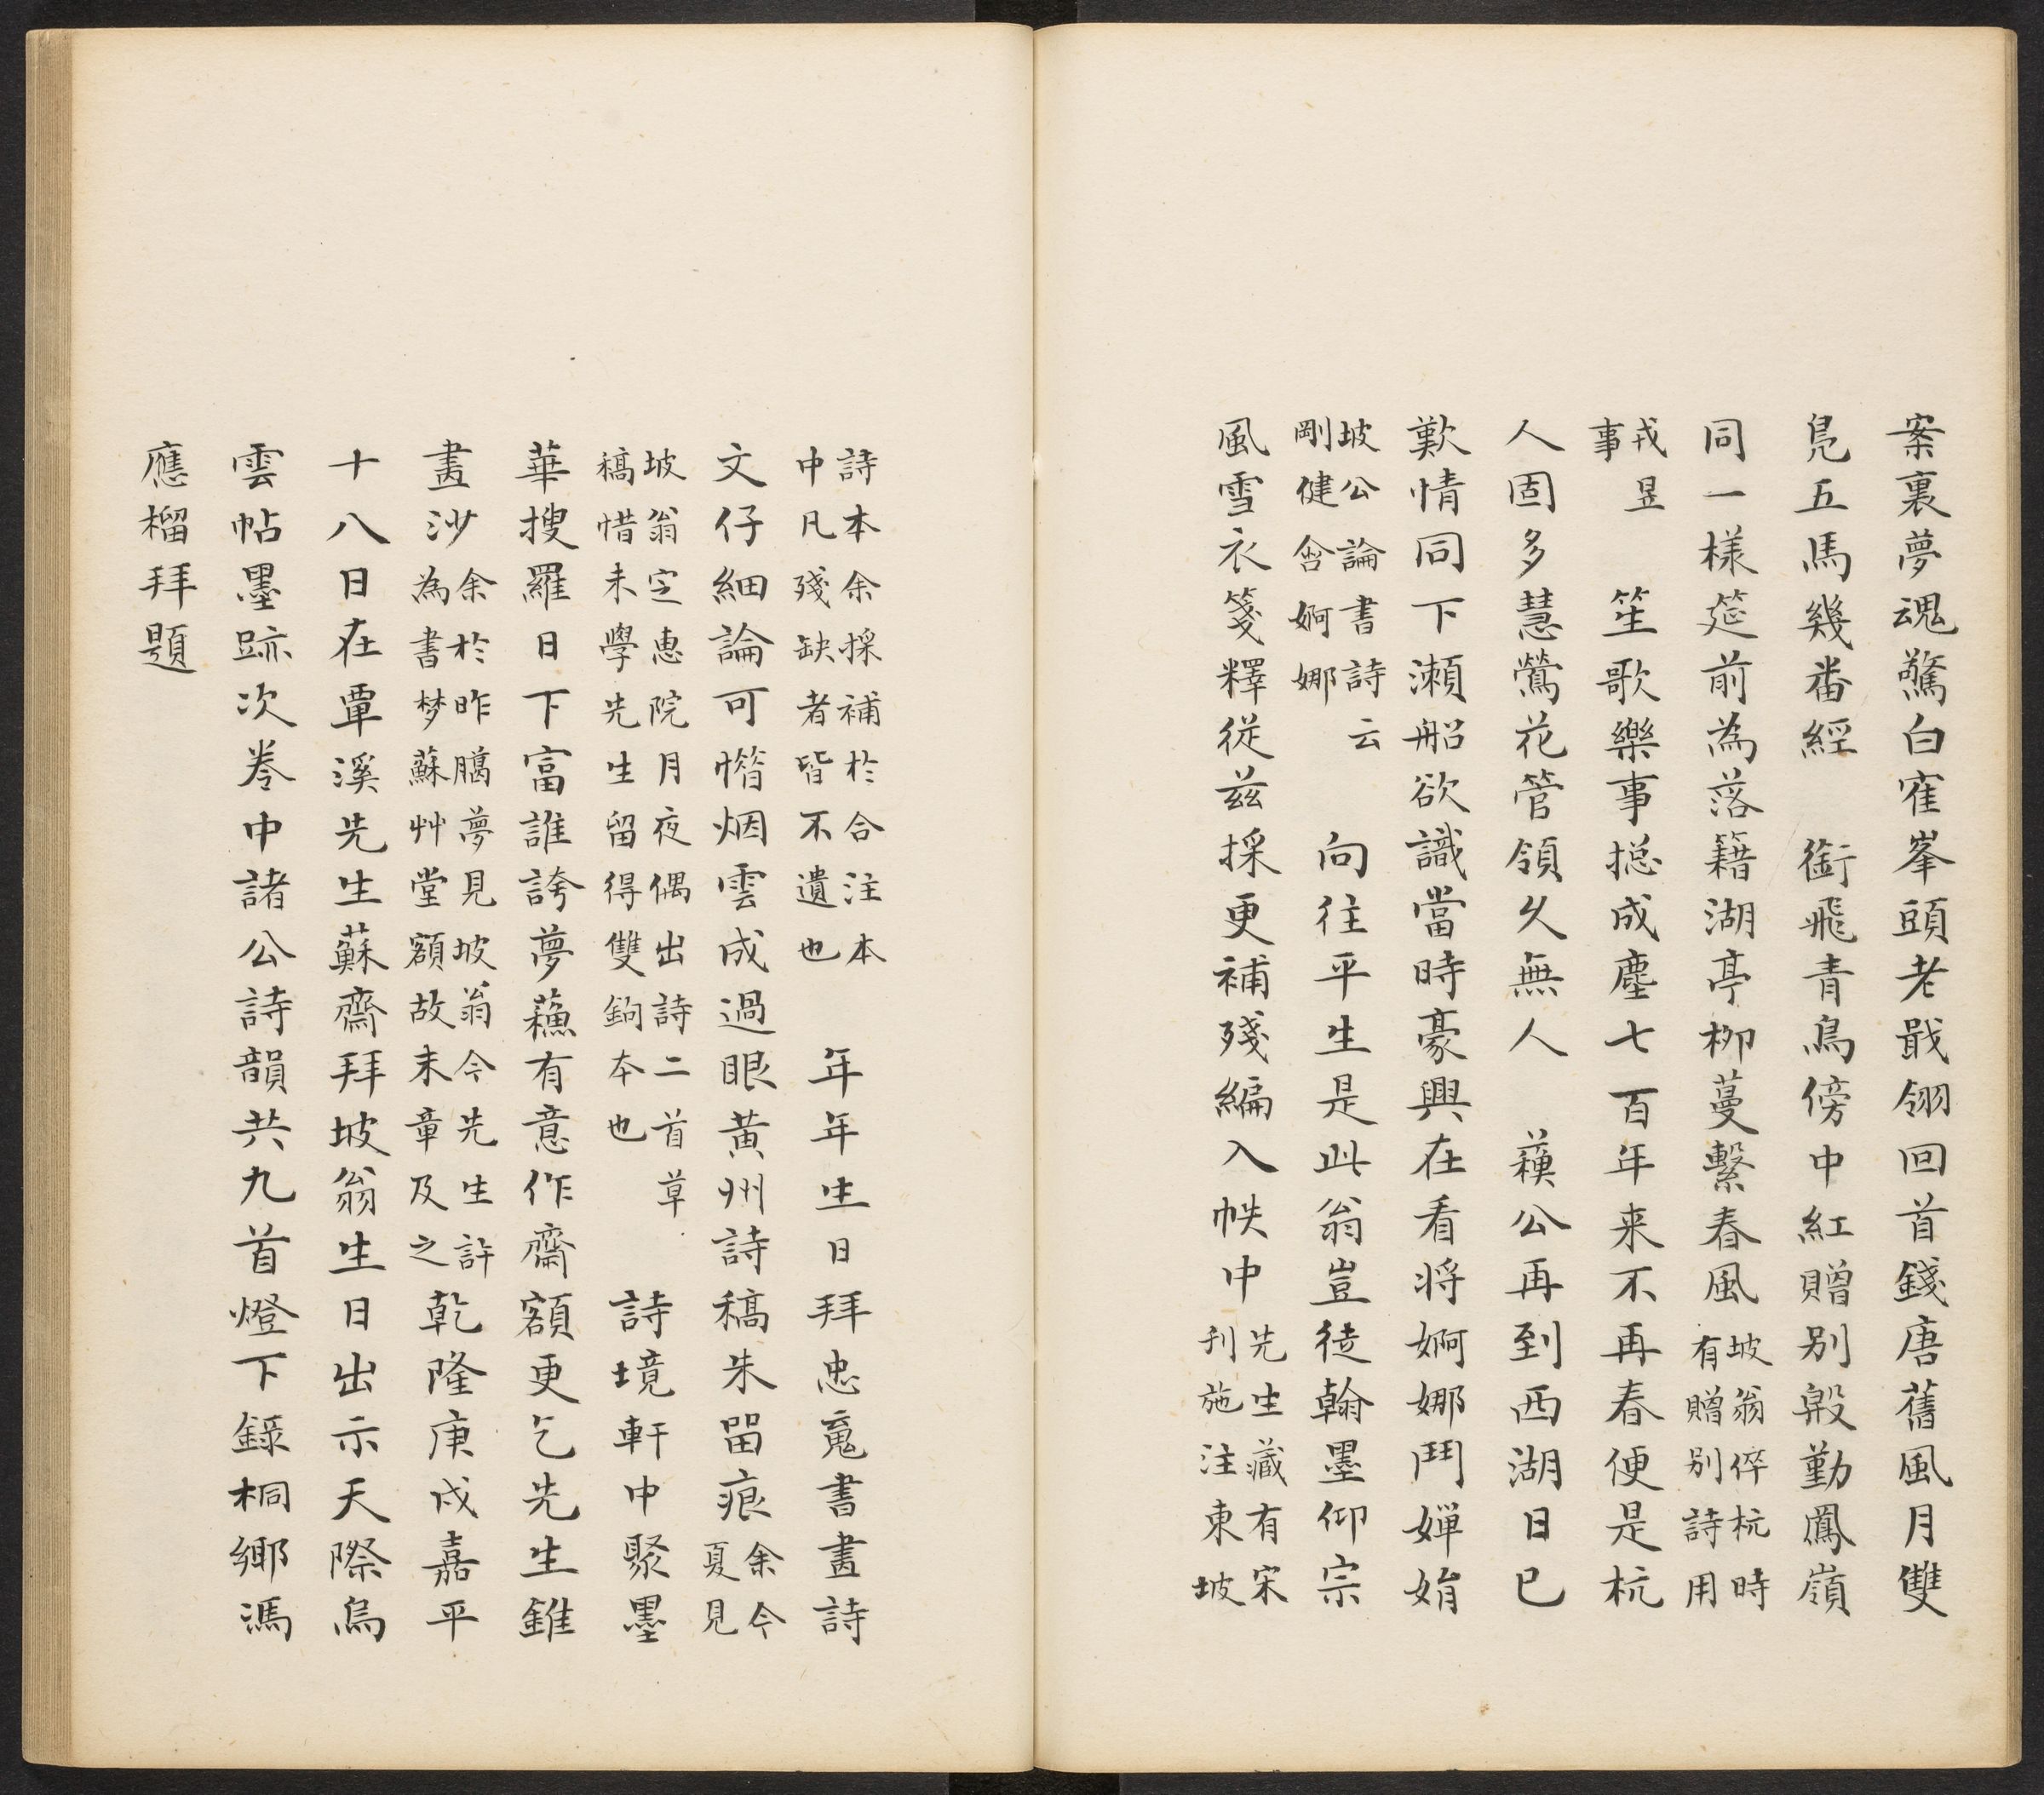 案裏夢魂驚白寉峯頭老戢翎回首錢唐舊風月雙
鳧五馬幾番經　銜飛青鳥傍中紅贈别殷勤鳳嶺
同一樣筵前為落籍湖亭柳蔓繫春風坡翁倅杭時有贈别詩用
戎昱事　笙歌樂事捴成塵七百年来不再春便是杭
人固多慧鶯花管領乆無人　蘓公再到西湖日已
歎情同下瀬船欲識當時豪興在看将婀娜鬥嬋娟
坡公論書詩云剛健含婀娜　向往平生是此翁豈徒翰墨仰宗
風雪衣箋釋從兹採更補殘編入帙中先生藏有宋刊施注東坡
詩本余採補於合注本中凡殘缺者皆不遺也　年年生日拜忠䰟書畫詩
文仔細論可惜烟雲成過眼黃州詩稿未畱痕余今夏見
坡翁定惠院月夜偶出詩二首草稿惜未學先生留得雙鉤本也　詩境軒中聚墨
華搜羅日下富誰誇夢蘓有意作齋額更乞先生錐
畫沙余於昨臈夢見坡翁今先生許為書梦蘇艸堂額故末章及之乾隆庚戌嘉平
十八日在覃溪先生蘇齋拜坡翁生日出示天際烏
雲帖墨跡次卷中諸公詩韻共九首燈下錄桐鄉馮
應榴拜題